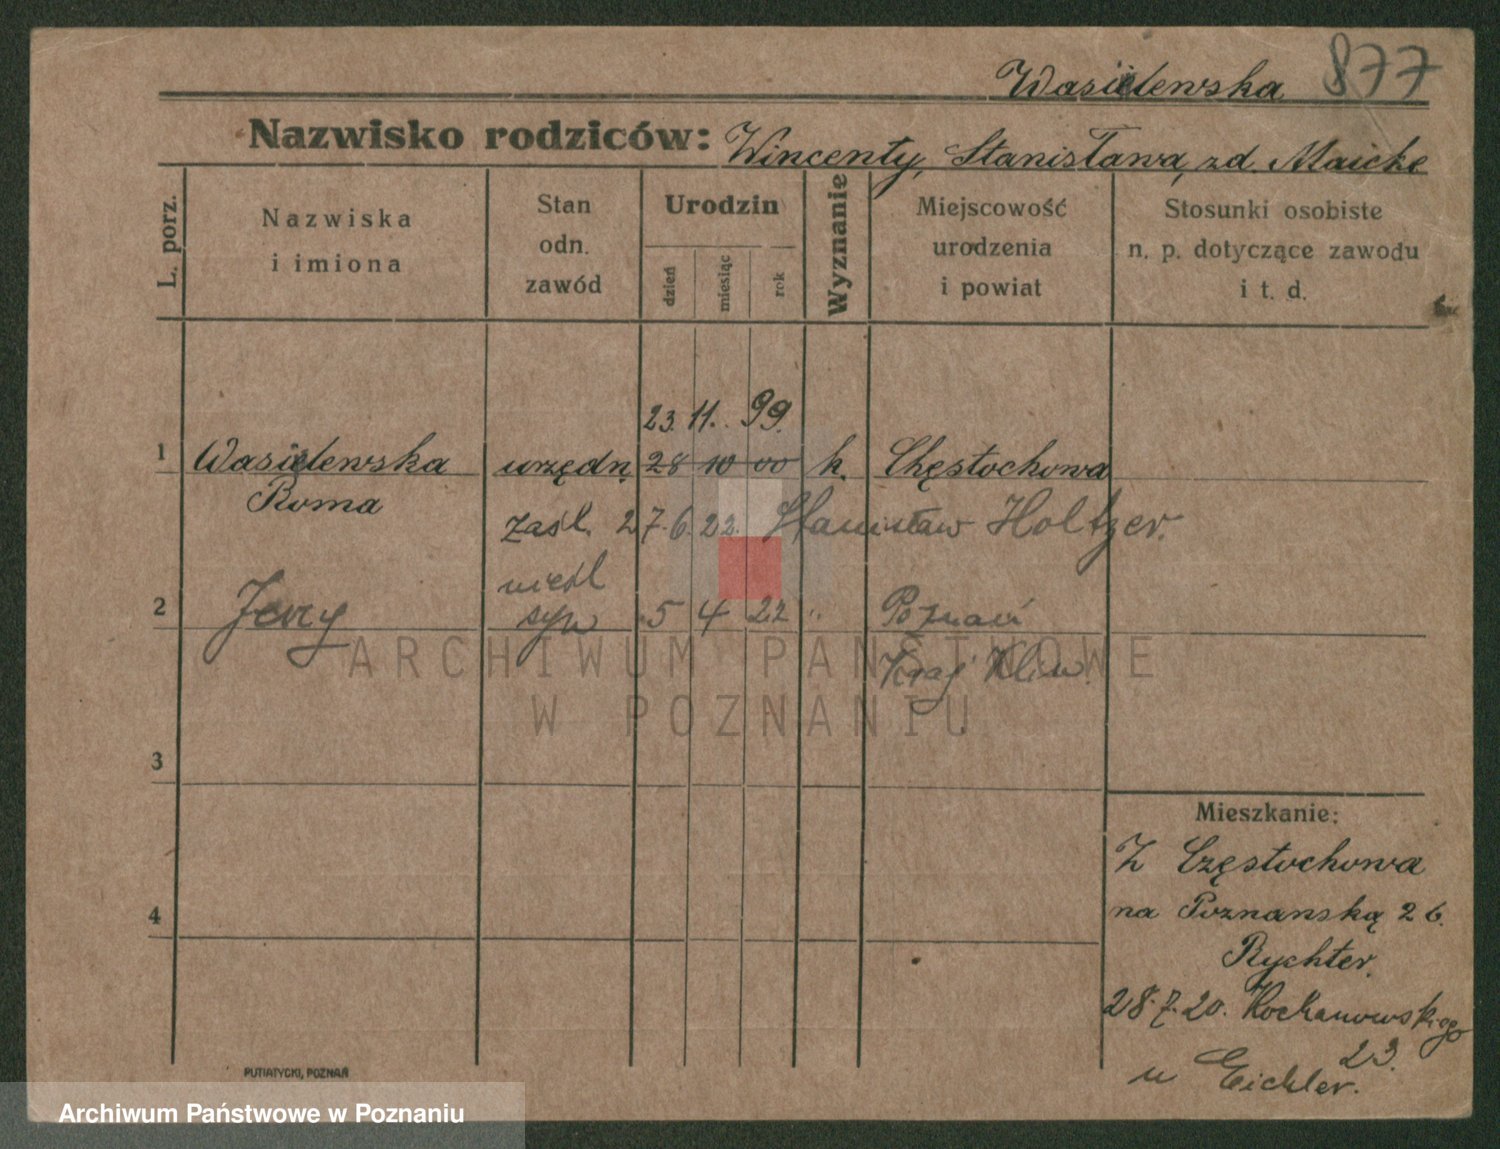 Wasielewska 877
Nazwisko rodziców: Wincenty, Stanisława, zd. Maicke
L. porz.
Nazwiska
i imiona
Stan
odn.
zawód
Urodzin
dzień
miesiąc
rok
Wyznanie
Miejscowość
urodzenia
i powiat
Stosunki osobiste
n. p. dotyczące zawodu
i t. d.
23. 11. 99.
1 Wasielewska urzędn. 28 10 00 k. Chęstochowa
Roma
zaśl. 27.6.22. Stanisław Holtzer.
nieśl
2 Jerzy syn 5 4 22 " Poznań
3
4
Mieszkanie:
Z Częstochowa
na Poznanską 26.
Rychter.
28.7.20. Kochanowskiego
23.
u Eichler.
PUTIATYCKI, POZNAŃ
ARCHIWUM PAŃSTWOWE
W POZNANIU
Archiwum Państwowe w Poznaniu